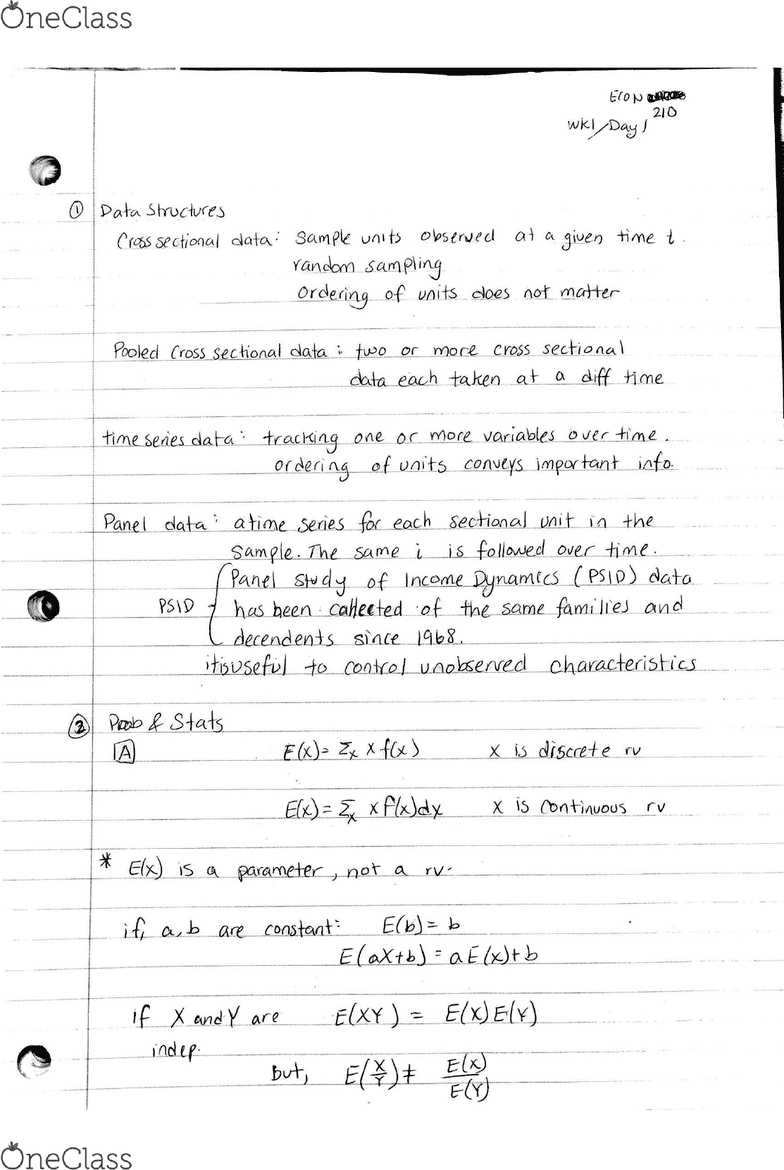 OneClass
ECON
210
WK1/Day 1
① Data Structures
Cross sectional data: Sample units observed at a given time t.
random sampling
Ordering of units does not matter
Pooled Cross sectional data: two or more cross sectional
data each taken at a diff time
time series data: tracking one or more variables over time.
ordering of units conveys important info.
Panel data: a time series for each sectional unit in the
Sample. The same i is followed over time.
PSID { Panel Study of Income Dynamics (PSID) data
has been collected of the same families and
decendents since 1968.
it is useful to control unobserved characteristics
② Prob & Stats
A E(x) = Σx x f(x) X is discrete rv
E(x) = Σx x f(x)dx X is continuous rv
* E(x) is a parameter, not a rv.
if, a, b are constant: E(b) = b
E(aX+b) = aE(x)+b
if X and Y are E(XY) = E(X)E(Y)
indep.
but, E(X/Y) ≠ E(X)/E(Y)
OneClass